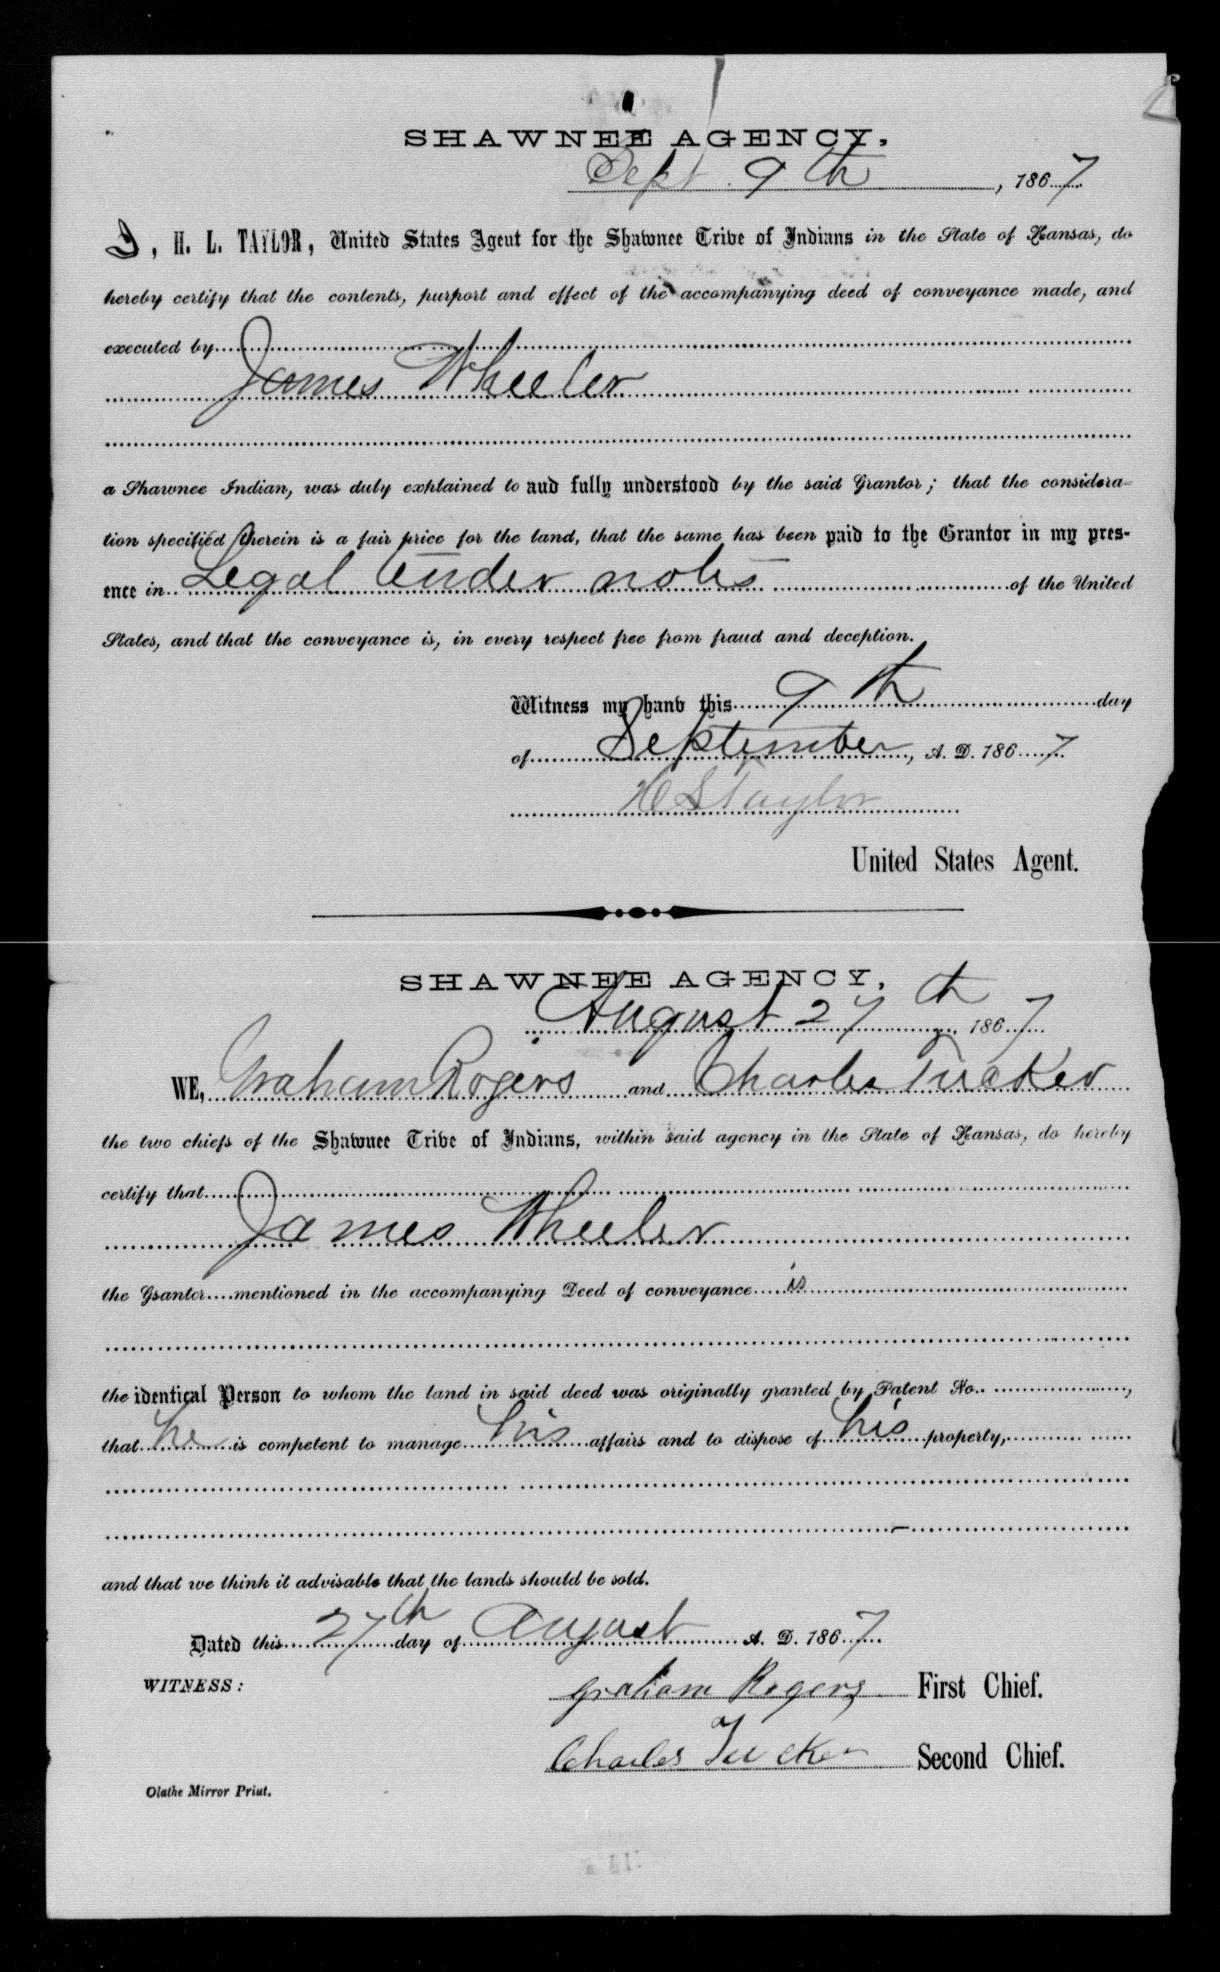 SHAWNEE AGENCY,
Sept 9th, 1867
I, H. L. TAYLOR, United States Agent for the Shawnee Tribe of Indians in the State of Kansas, do
hereby certify that the contents, purport and effect of the accompanying deed of conveyance made, and
executed by
James Wheeler
a Shawnee Indian, was duly explained to and fully understood by the said Grantor; that the considera-
tion specified therein is a fair price for the land, that the same has been paid to the Grantor in my pres-
ence in Legal tender notes of the United
States, and that the conveyance is, in every respect free from fraud and deception.
Witness my hand this 9th day
of September, A. D. 1867
H L Taylor
United States Agent.
SHAWNEE AGENCY,
August 27th 1867
WE, Graham Rogers and Charles Tucker
the two chiefs of the Shawnee Tribe of Indians, within said agency in the State of Kansas, do hereby
certify that
James Wheeler
the Grantor mentioned in the accompanying Deed of conveyance is
the identical Person to whom the land in said deed was originally granted by Patent No. ,
that he is competent to manage his affairs and to dispose of his property,
and that we think it advisable that the lands should be sold.
Dated this 27th day of August A. D. 1867
WITNESS: Graham Rogers First Chief.
Charles Tucker Second Chief.
Olathe Mirror Print.